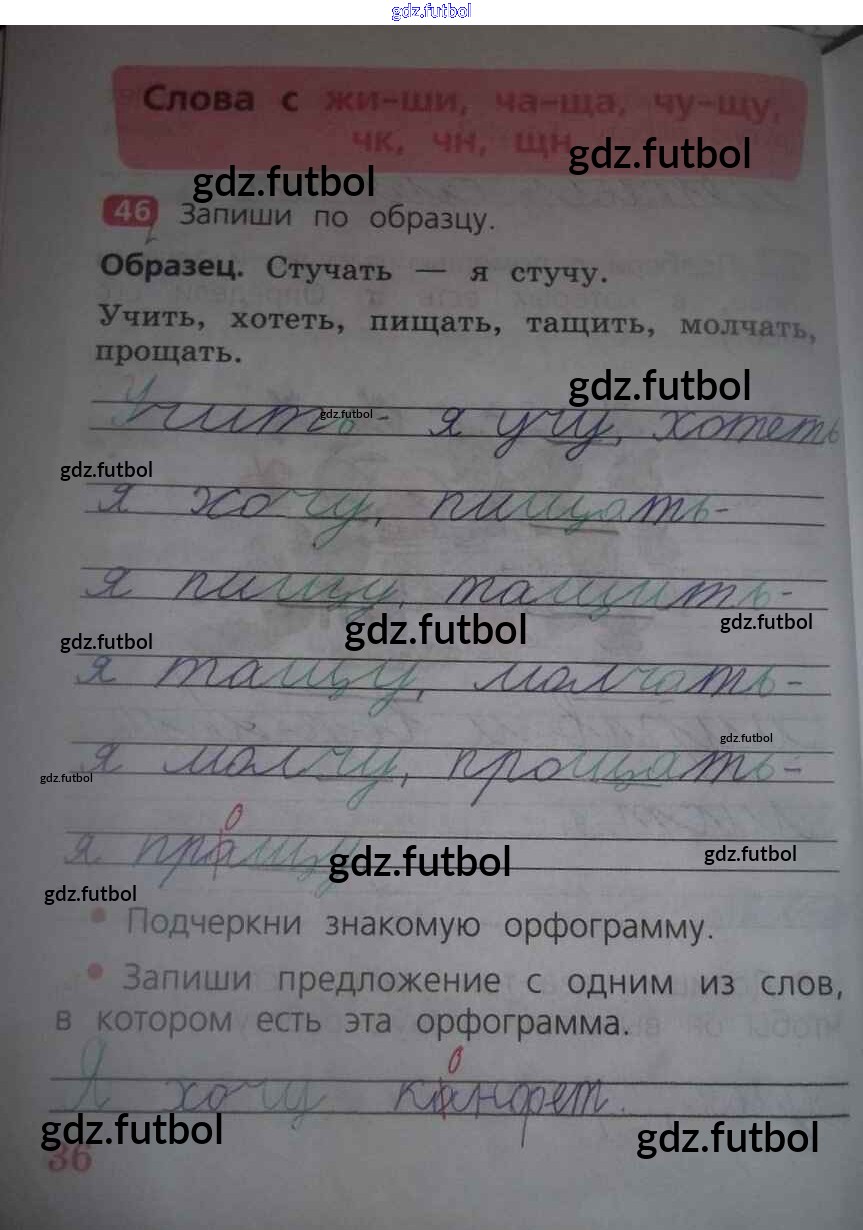 gdz.futbol
Слова с жи–ши, ча–ща, чу–щу,
чк, чн, щн
gdz.futbol
gdz.futbol
46 Запиши по образцу.
Образец. Стучать — я стучу.
Учить, хотеть, пищать, тащить, молчать,
прощать.
gdz.futbol
Учить - я учу, хотеть
gdz.futbol
gdz.futbol
я хочу, пищать-
я пищу, тащить-
gdz.futbol
gdz.futbol
gdz.futbol
я тащу, молчать-
gdz.futbol
я молчу, прощать-
gdz.futbol
о
я пращу
gdz.futbol
gdz.futbol
gdz.futbol
• Подчеркни знакомую орфограмму.
• Запиши предложение с одним из слов,
в котором есть эта орфограмма.
о
Я хочу канфет.
gdz.futbol
gdz.futbol
36